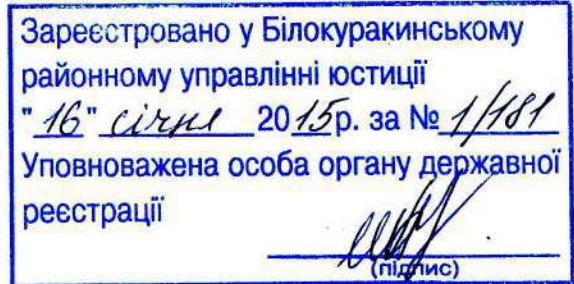 Зареєстровано у Білокуракинському
районному управлінні юстиції
"16" січня 2015р. за № 1/181
Уповноважена особа органу державної
реєстрації
(підпис)